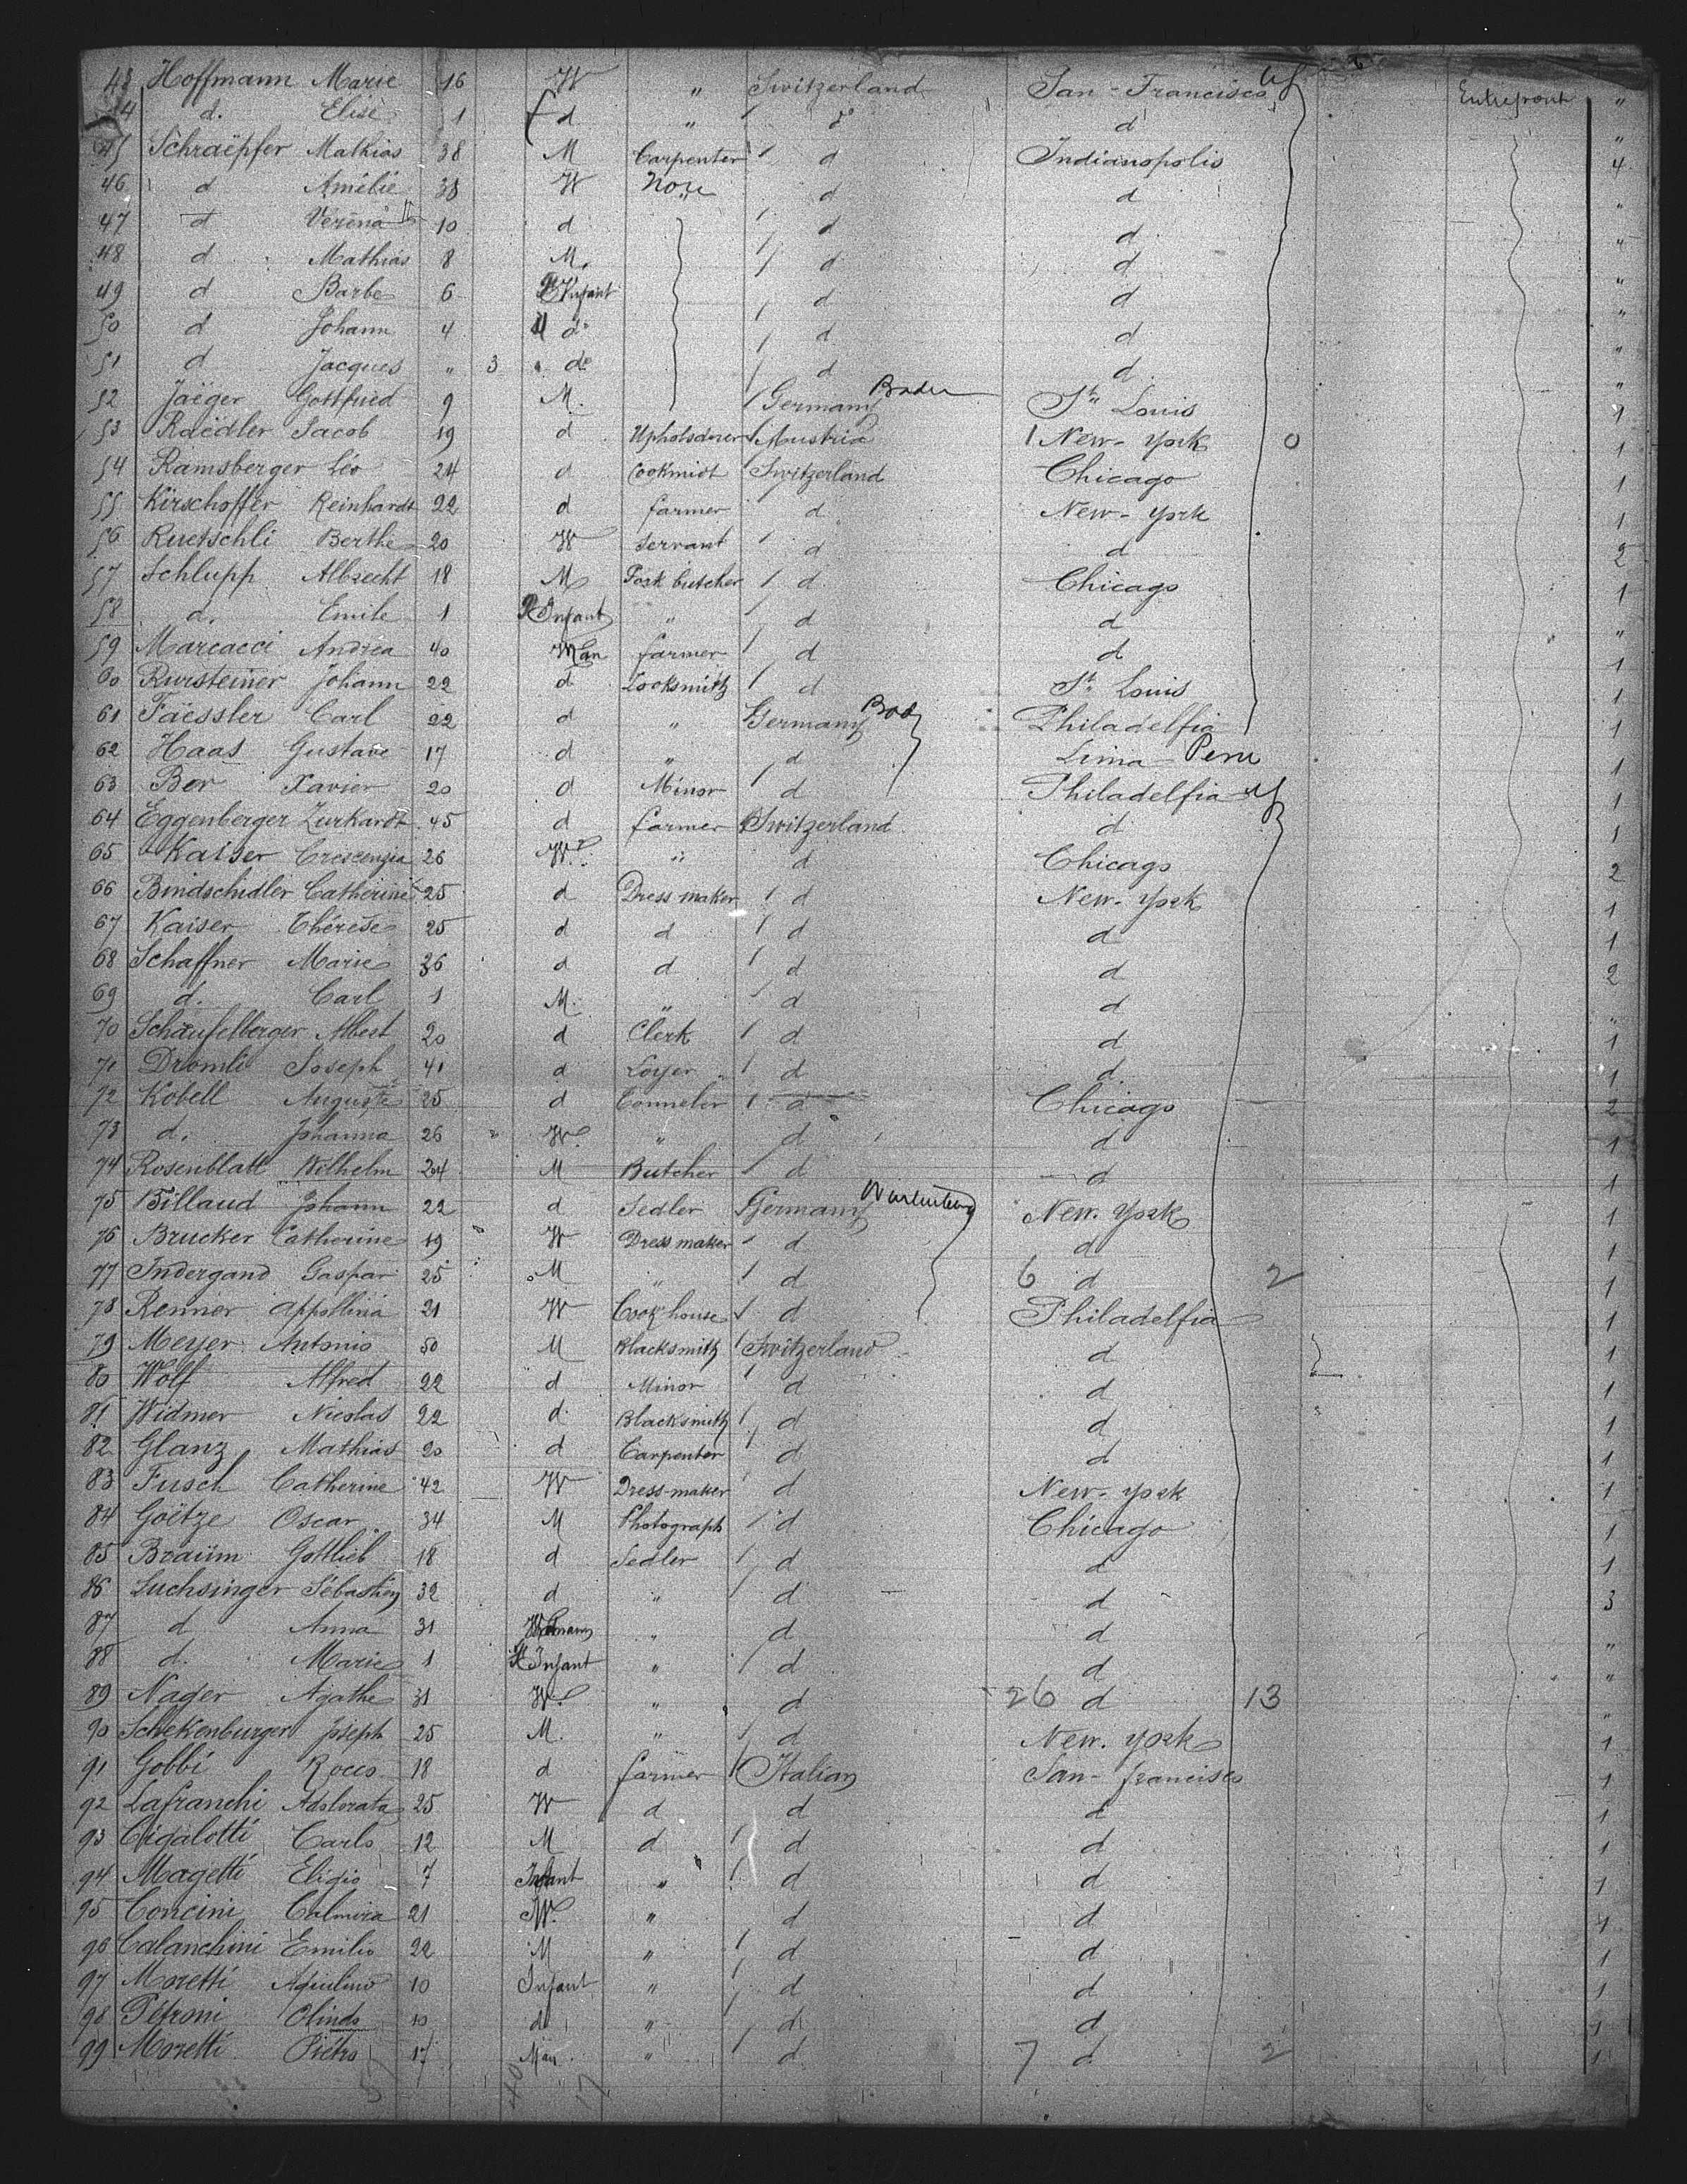 43 Hoffmann Marie 16 W " Switzerland San-Francisco Entrepont "
44 d. Elise 1 f d " d° d "
45 Schraëpfer Mathias 38 M Carpenter d Indianopolis 4
46 d Amélie 38 W None d d "
47 d Véréna 10 d d d "
48 d Mathias 8 M. d d "
49 d Barbe 6 Infant d d "
50 d Johann 4 d° d d "
51 d Jacques " 3 d° d d "
52 Jaëger Gottfried 9 M. Germany Baden St Louis 1
53 Raëdler Jacob 19 d Upholsderer Austria 1 New-York 0 1
54 Ramsberger Léo 24 d Cookmidt Switzerland Chicago 1
55 Kirschoffer Reinhardt 22 d farmer d New-York 1
56 Ruetschli Berthe 20 W Servant d d 2
57 Schlupp Albrecht 18 M Pork butcher d Chicago 1
58 d. Emile 1 Infant " d d "
59 Marcacci Andrea 40 Man farmer d d 1
60 Rursteiner Johann 22 d Locksmith d St Louis 1
61 Faëssler Carl 22 d " Germany Bad Philadelfia 1
62 Haas Gustave 17 d " d Lima - Peru 1
63 Ber Xavier 20 d Minor d Philadelfia 1
64 Eggenberger Zurkardt 45 d farmer Switzerland d 1
65 Kaiser Crescenzia 26 W " d Chicago 2
66 Bindschedler Catherine 25 d Dress maker d New-York 1
67 Kaiser Thérèse 25 d d d d 1
68 Schaffner Marie 26 d d d d 2
69 d. Carl 1 M. " d d "
70 Schaufelberger Albert 20 d Clerk d d 1
71 Dromli Joseph 41 d Loyer d d. 1
72 Kobell Auguste 25 d d Chicago 2
73 d. Johanna 26 W. " d d 1
74 Rosenblatt Wilhelm 24 M Butcher d d 1
75 Billaud Johann 22 d Sedler Germany Wurtemberg New. York 1
76 Brucker Catherine 19 W Dress maker d d 1
77 Indergand Gaspar 25 M " d 6 d 2 1
78 Renner appollina 21 W Cook house d Philadelfia 1
79 Meyer Antonio 50 M Blacksmith Switzerland d 1
80 Wolf Alfred 22 d Minor d d 1
81 Widmer Nicolas 22 d Blacksmith d d 1
82 Glanz Mathias 20 d Carpenter d d 1
83 Fusch Catherine 42 W Dress-maker d New-York 1
84 Goëtze Oscar 34 M Photograph d Chicago 1
85 Braüm Gottlieb 18 d Sedler d d 1
86 Luchsinger Sébastien 32 d " d d 3
87 d Anna 31 Woman " d d "
88 d. Marie 1 Infant " d d "
89 Nager Agathe 31 W. " d 26 d 13 "
90 Schekenburger Joseph 25 M. " d New. York 1
91 Gobbi Rocco 18 d farmer Italian San-francisco 1
92 Lafranchi Adolorata 25 W d d d 1
93 Cigalotti Carlo 12 M d d d 1
94 Magetti Eligio 7 Infant " d d 1
95 Concini Calmira 21 W. " d d 1
96 Calanchini Emilio 22 M " d d 1
97 Moretti Aquilino 10 Infant " d d 1
98 Petroni Olindo 10 d " d d 1
99 Moretti Piétro 17 Man " d 7 d 2 1